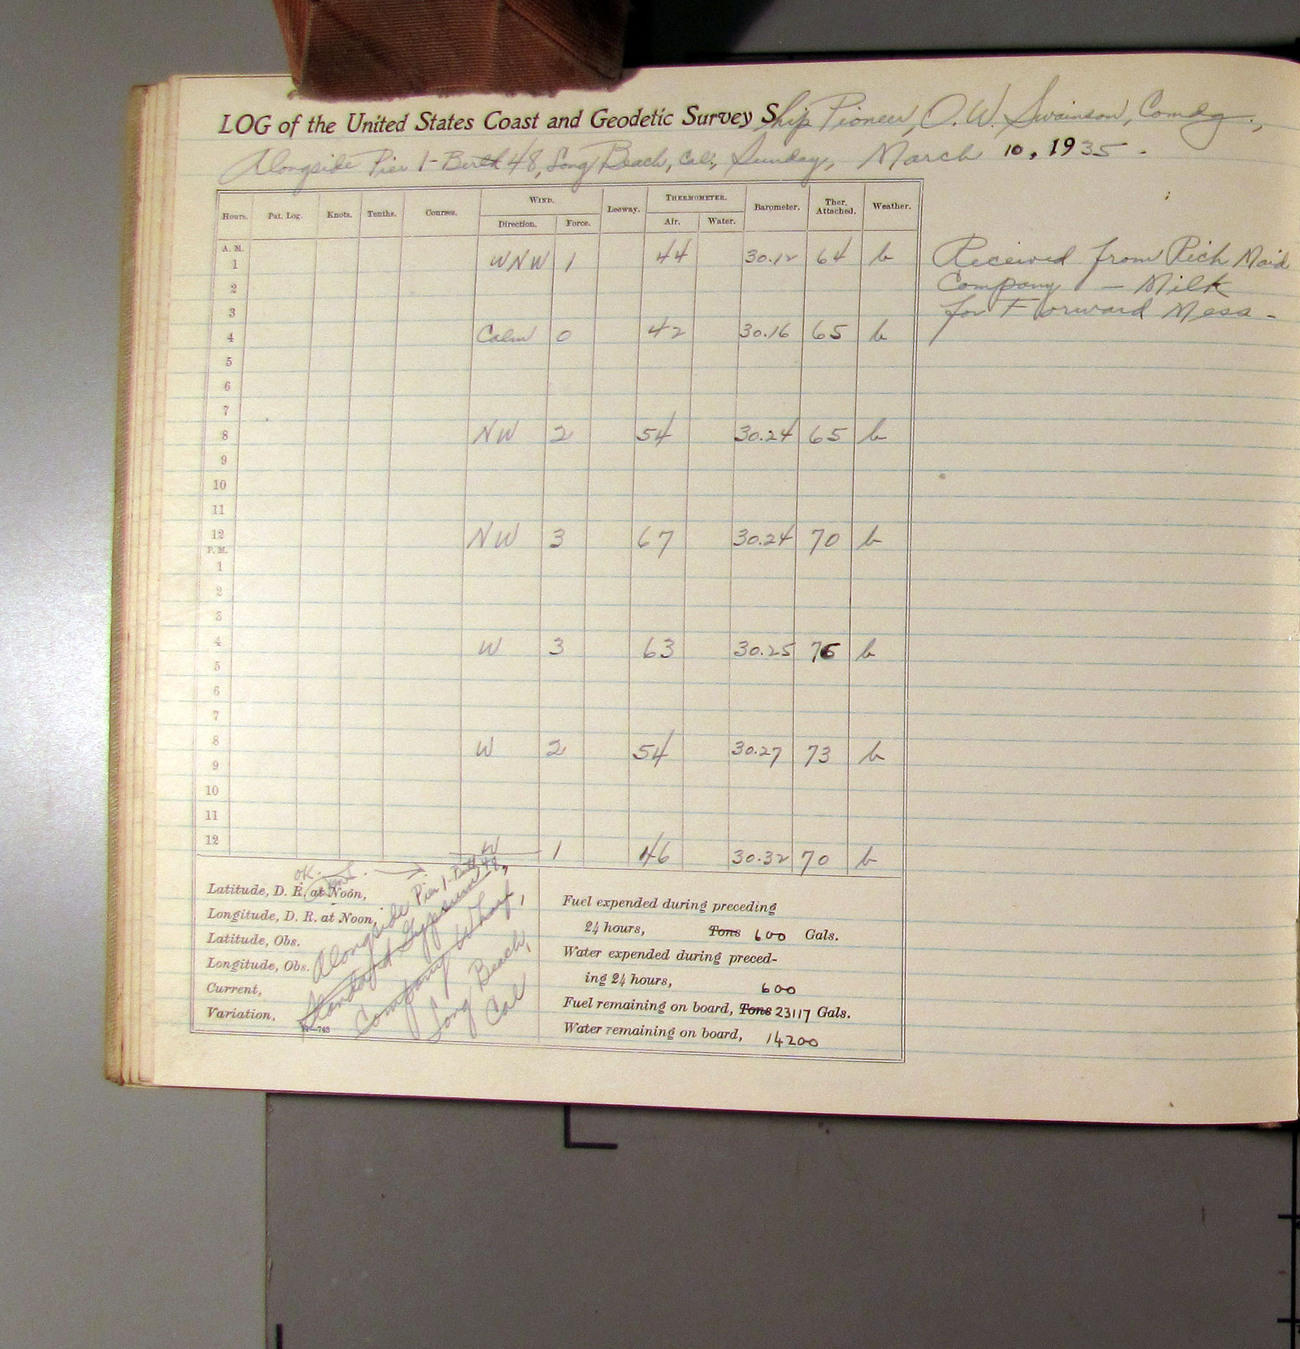 LOG of the United States Coast and Geodetic Survey Ship Pioneer, O. W. Swainson, Comdg.,
Alongside Pier 1-Berth 48, Long Beach, Cal, Sunday, March 10, 1935.
Hours. Pat. Log. Knots. Tenths. Courses. WIND. Leeway. THERMOMETER. Barometer. Ther. Attached. Weather.
Direction. Force. Air. Water.
A. M.
1 WNW 1 44 30.12 64 b
2
3
4 Calm 0 42 30.16 65 b
5
6
7
8 NW 2 54 30.24 65 b
9
10
11
12 NW 3 67 30.24 70 b
P. M.
1
2
3
4 W 3 63 30.25 76 b
5
6
7
8 W 2 54 30.27 73 b
9
10
11
12 W 1 46 30.32 70 b
Received from Rich Maid
Company — Milk
for Forward Mess -
Latitude, D. R. at Noon,
Longitude, D. R. at Noon,
Latitude, Obs.
Longitude, Obs.
Current,
Variation,
OK.
Alongside Pier 1-Berth 48,
Standard Gypsum
Company Wharf,
Long Beach,
Cal
11—763
Fuel expended during preceding
24 hours, Tons 600 Gals.
Water expended during preced-
ing 24 hours, 600
Fuel remaining on board, Tons 23117 Gals.
Water remaining on board, 14200